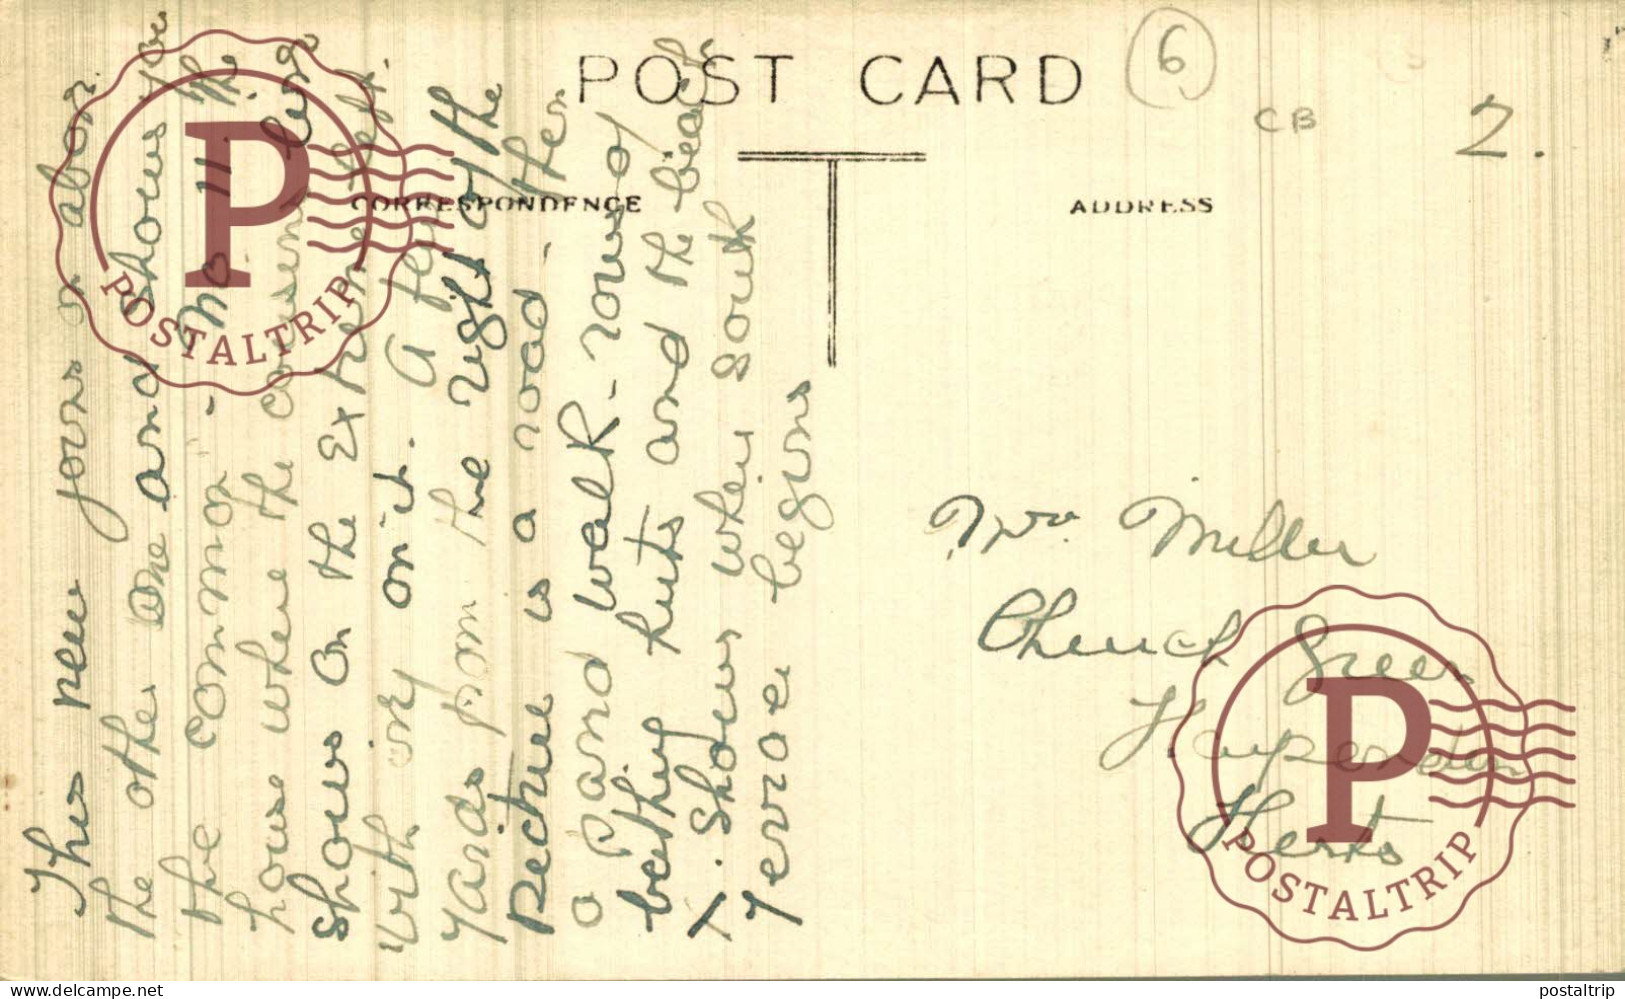 POST CARD
6
CB
2.
CORRESPONDENCE
ADDRESS
This new joins on above
the other one and shows you
the common - Mo 11. The
house where the cousins
shows on the extreme left
with ivy on it. A few
yards from the right of the
picture is a road - then
a sand walk - rows of
bathing huts and the beach
X. Shows where South
Terrace begins
Mrs. Miller
Church Green
Harpenden
Herts
POSTALTRIP
POSTALTRIP
www.delcampe.net
postaltrip